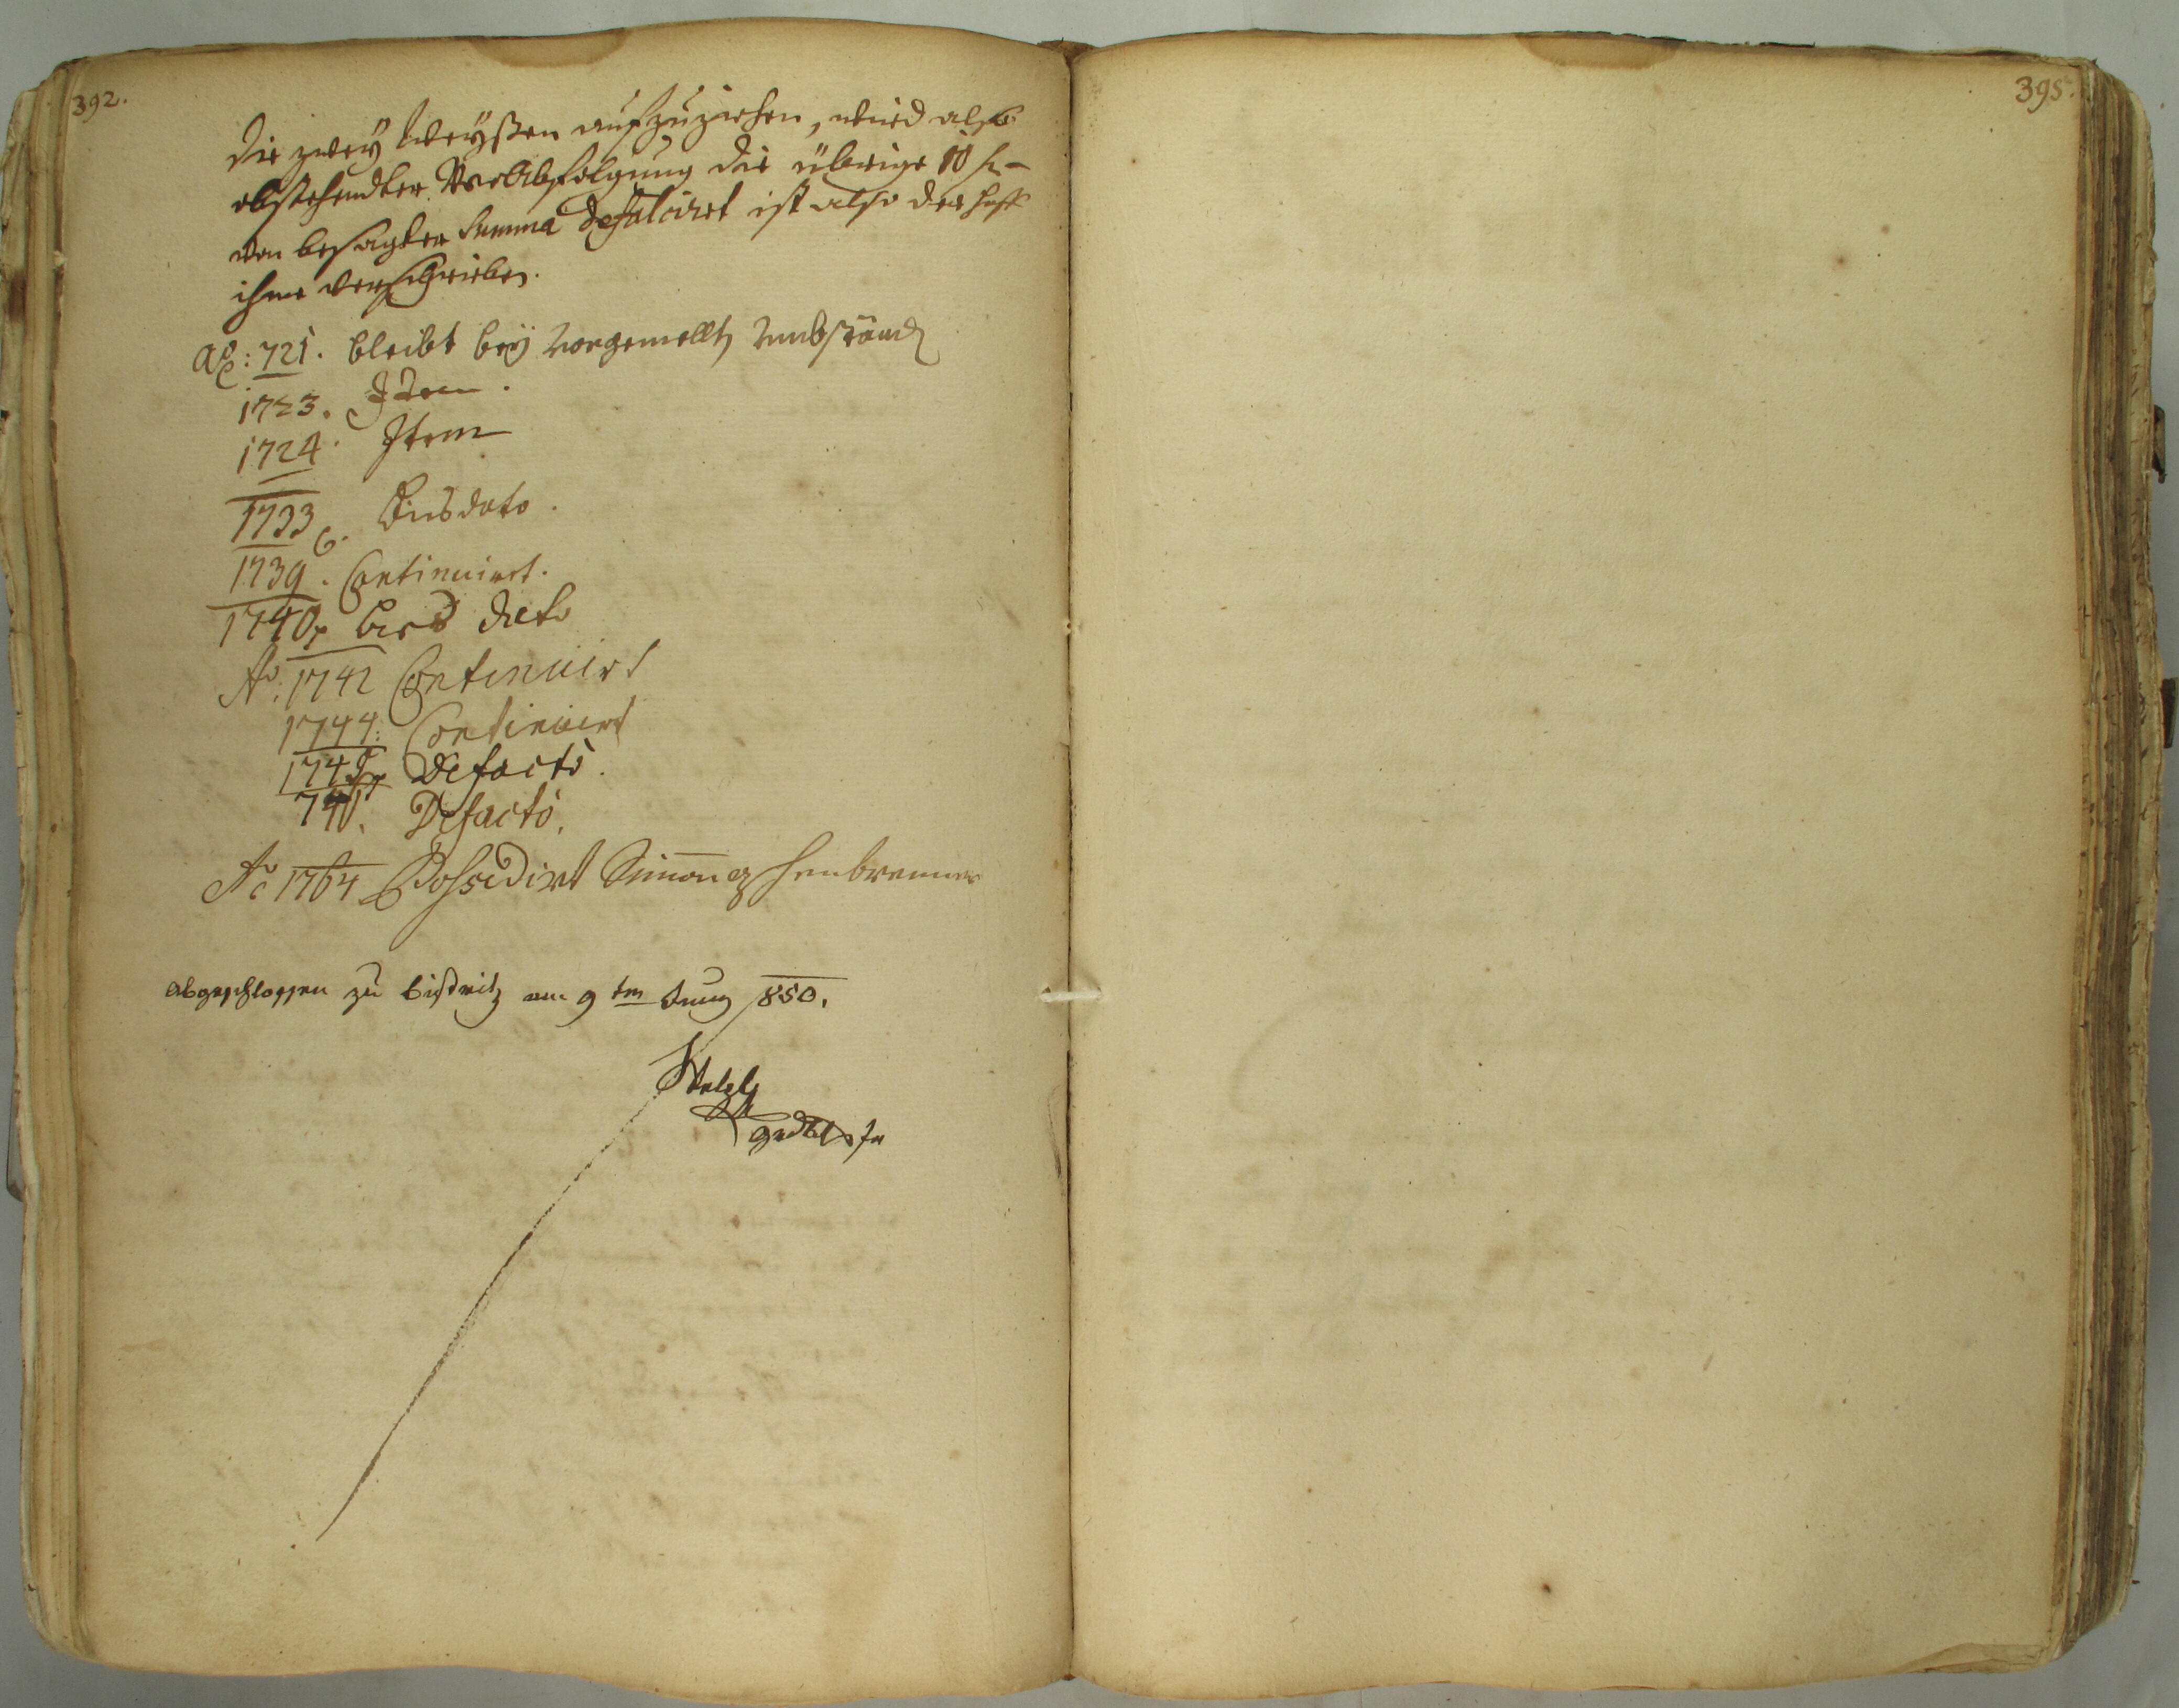 392.
die zwey Weyßen aufzuziehen, wird also
obstehender Verabfolgung die übrige 10 f. –
von besagter Summa defalcirt ist also der Hoff
ihme verschrieben.
Aō: 721. bleibt bey vorgemelltz umbständ
1723. Idem.
1724. Item
1733 Bis dato.
1739. Continuirt.
1740 bis dato
Aō: 1742 Continuirt
1744: Continuirt
1745 Defacto.
Defacto.
Ao 1764 Possedirt Simon
abgeschlossen zu Bistritz am 9ten Juny 850.
395.